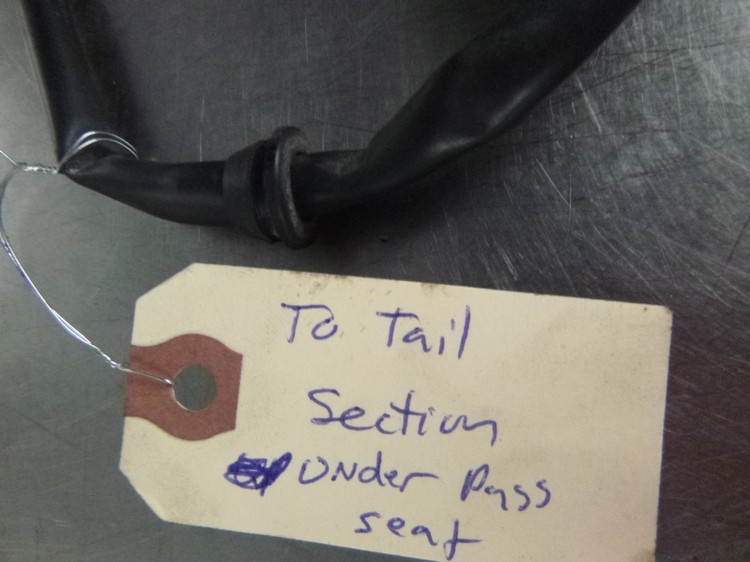 To Tail
Section
Under Pass
seat